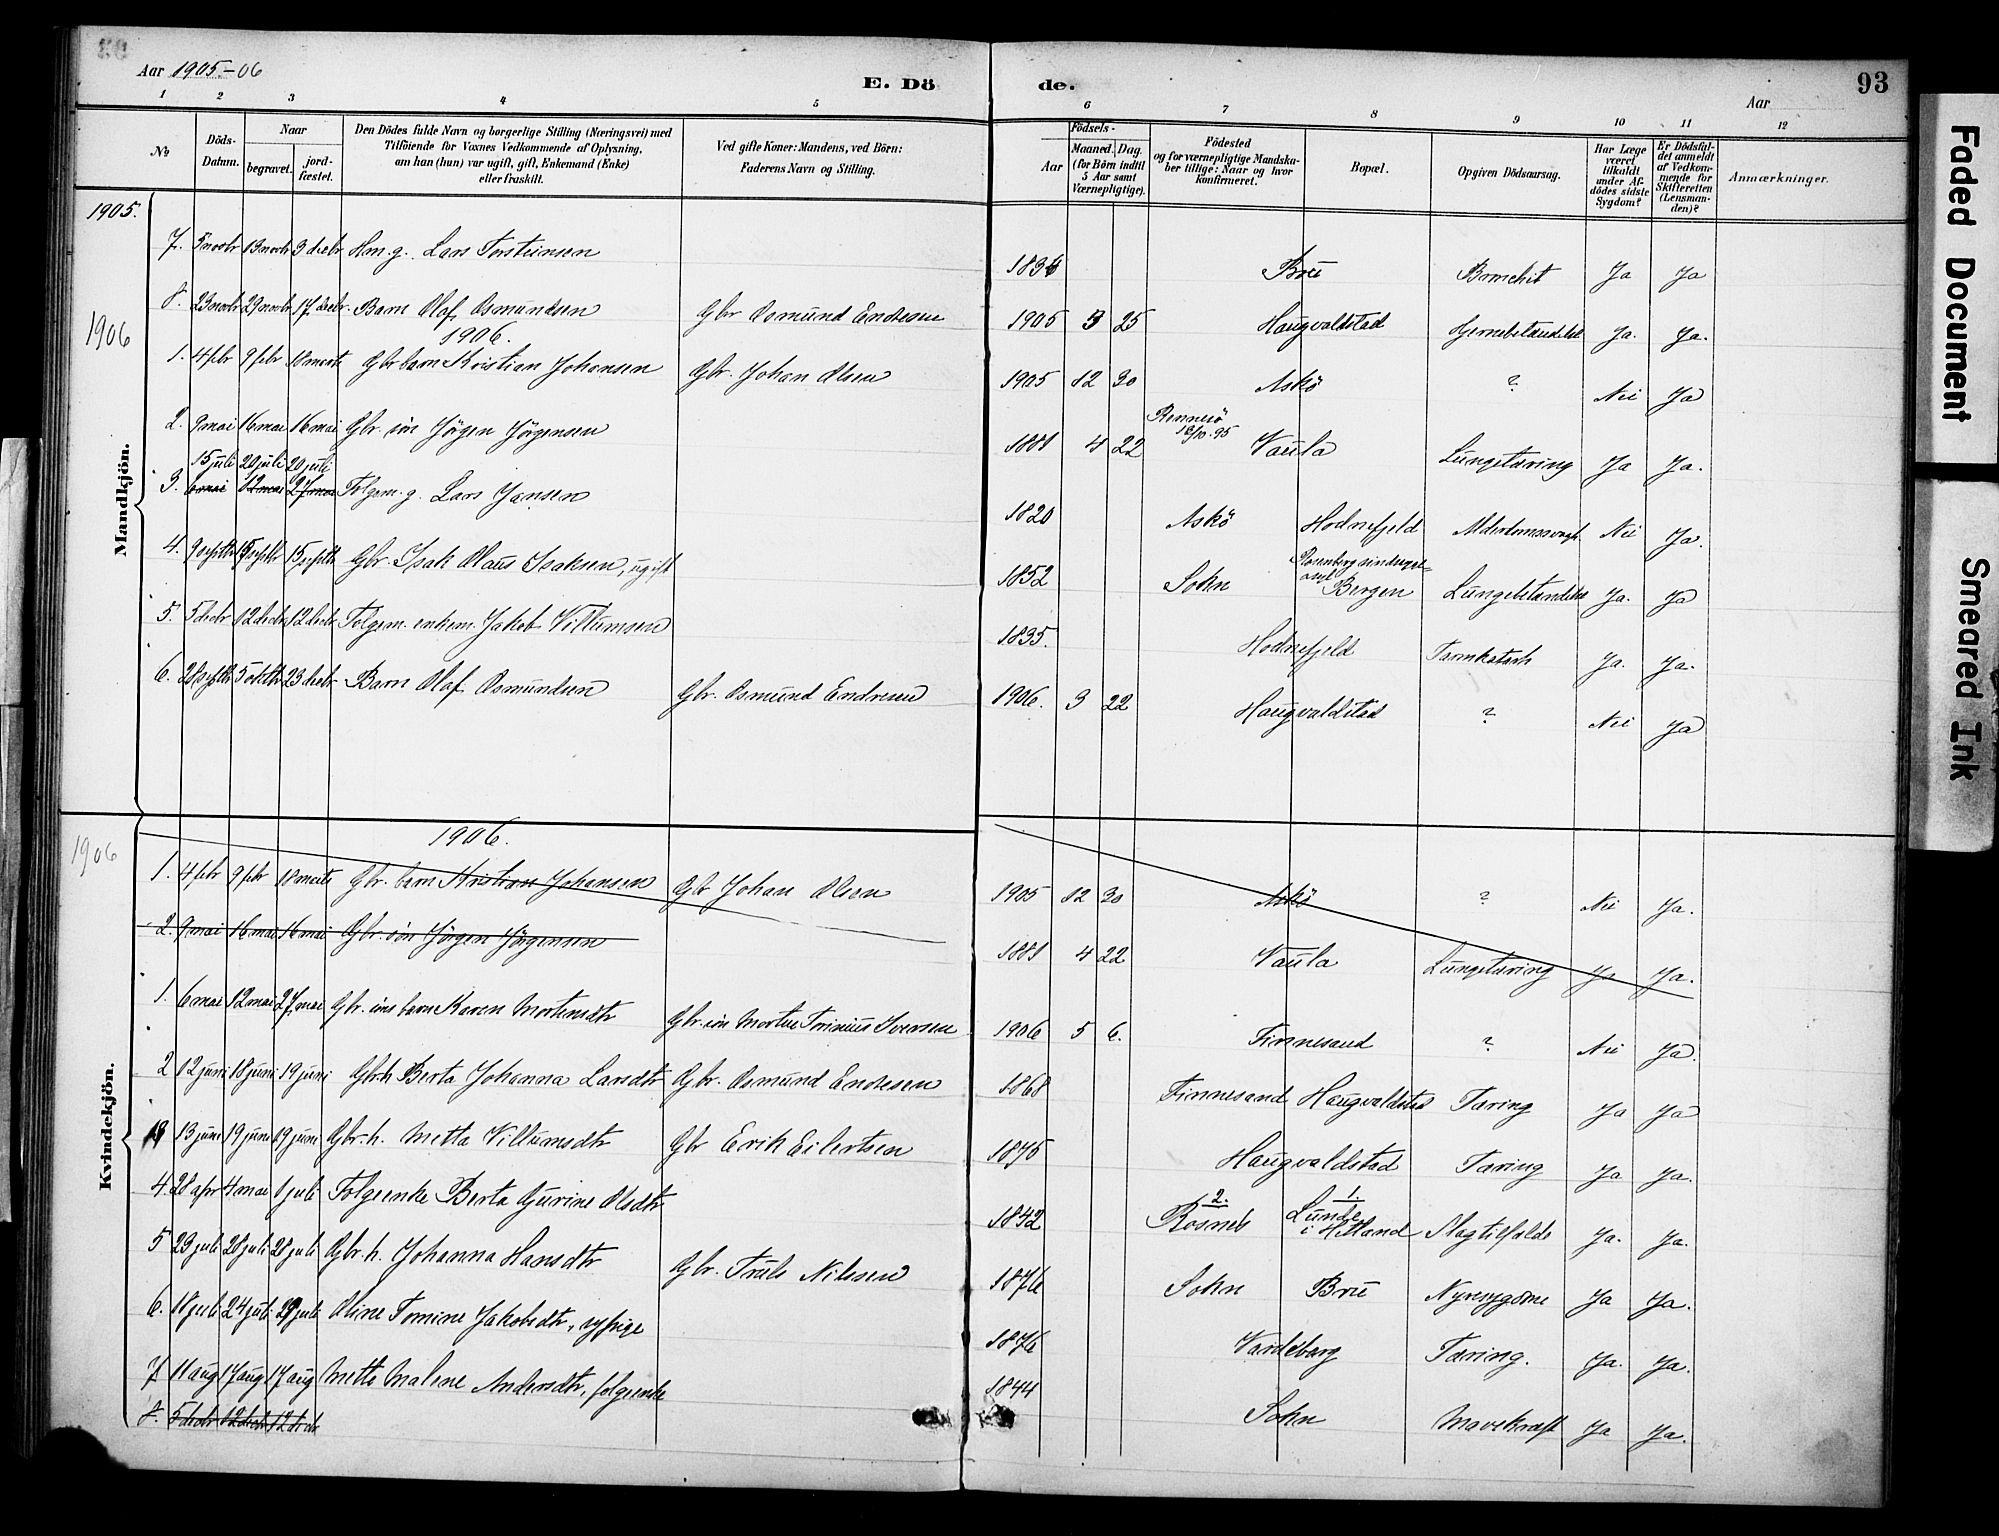 Aar 1905-06
E. Dö
de.
Aar
93
1 2 3 4 5 6 7 8 9 10 11 12
№
Döds-Datum.
Naar
begravet.
jord-fæstet.
Den Dödes fulde Navn og borgerlige Stilling (Næringsvei) med
Tilföiende for Voxnes Vedkommende af Oplysning,
om han (hun) var ugift, gift, Enkemand (Enke)
eller fraskilt.
Ved gifte Koner: Mandens, ved Börn:
Faderens Navn og Stilling.
Födsels-
Aar
Maaned. Dag.
(for Börn indtil
5 Aar samt
Værnepligtige).
Födested
og for værnepligtige Mandska-
ber tillige: Naar og hvor
konfirmeret.
Bopæl.
Opgiven Dödsaarsag.
Har Læge
været
tilkaldt
under Af-
dödes sidste
Sygdom?
Er Dödsfal-
det anmeldt
af Vedkom-
mende for
Skifteretten
(Lensman-
den)?
Anmærkninger.
Mandkjön.
1905.
7. 5 novbr 13 novbr 3 decbr Hm. g. Lars Torsteinsen 1834 Bru Bronchit Ja Ja
8. 23 novbr 29 novbr 17 decbr. Barn Olaf Osmundsen Gbr Osmund Endresen 1905 3 25 Haugvaldstad Ja. Ja.
1906
1906.
1. 4 febr 9 febr 18 marts Gbr barn Kristian Johansen Gbr. Johan Olsen 1905 12 30 Askö ? Nei Ja
2. 9 mai 16 mai 16 mai Gbr. sön Jörgen Jörgensen 1881 4 22 Rennesö 95 Vaula Lungetæring Ja Ja.
15 juli 20 juli 20 juli
3. 6 mai 12 mai 27 mai Folgem. g. Lars Jansen 1820 Askö Hodnefjeld Alderdomssvagh. Nei Ja.
4. 9 septbr 15 septbr 15 septbr Gbr. Isak Olaus Isaksen, ugift 1852 Sokn Rosenberg sindssygeasyl Bergen Ja. Ja
5. 5 decbr 12 decbr 12 decbr Folgem. enkem. Jakob Villumsen 1835. Hodnefjeld Tarmkatarh Ja. Ja.
6. 28 septbr 5 oktbr 23 decbr Barn Olaf Osmundsen Gbr. Osmund Endresen 1906. 3 22 Haugvaldstad ? Nei Ja
Kvindekjön.
1906
1906.
1. 4 febr 9 febr 18 marts Gbr. barn Kristian Johansen Gbr Johan Olsen 1905 12 30 Askö ? Nei Ja.
2. 9 mai 16 mai 16 mai Gbr. sön Jörgen Jörgensen 1881 4 22 Vaula Lungetæring Ja Ja.
1. 6 mai 12 mai 27 mai Gbr. söns barn Karen Mortensdtr Gbr. sön Morten Torinius Iversen 1906 5 6. Finnesand ? Nei Ja.
2 12 juni 18 juni 19 juni Gbr h Berta Johanna Larsdtr Gbr. Osmund Endresen 1868 Finnesand Haugvaldstad Tæring Ja Ja
13 juni 19 juni 19 juni Gbr. h. Metta Villumsdtr Gbr Erik Eilertsen 1875 Haugvaldstad Tæring Ja Ja.
4. 28 apr 4 mai 1 juli Folgeenke Berta Gurine Olsdtr 1842 2. Bosneb 1. Lunde i Hetland Slagtilfælde Ja. Ja.
5 23 juli 28 juli 28 juli Gbr. h. Johanna Hansdtr Gbr. Truls Nilssen 1876 Sokn Bru Nyresygdome Ja Ja.
6. 18 juli 24 juli 29 juli Oline Tomine Jakobsdtr, sypige 1876 Vardeberg Tæring. Ja. Ja.
7 11 aug 17 aug 17 aug Metta Malene Andersdtr, folgeenke 1844 Sokn Mavekræft Ja Ja.
8. 5 decbr 12 decbr 12 decbr
Faded Document
Smeared Ink